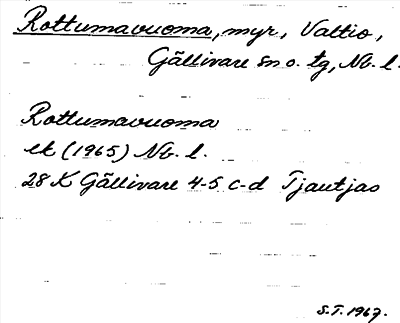 Rottumavuoma, myr, Valtio,
Gällivare sn o. tg, Nb. l.
Rottumavuoma
ek (1965) Nb. l.
28 K Gällivare 4-5 c-d Tjautjas
S.T. 1967.